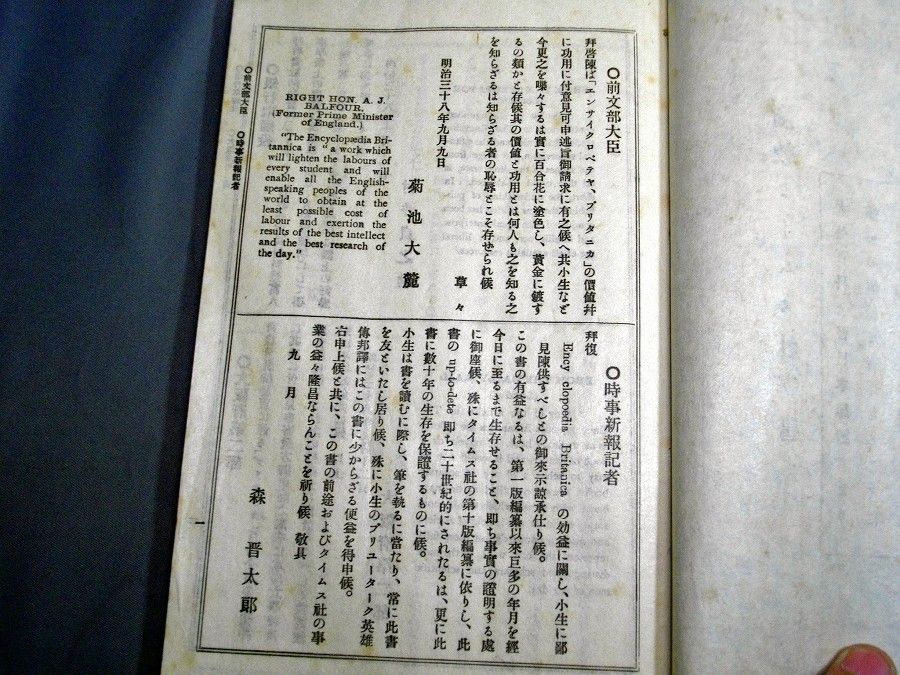 〇前文部大臣
拜啓陳ば「エンサイクロペデヤ、ブリタニカ」の價値幷
に功用に付意見可申述旨御請求に有之候へ共小生など
今更之を喋々するは實に百合花に塗色し、黄金に鍍す
るの類かと存候其の價値と功用とは何人も之を知る之
を知らざるは知らざる者の恥辱とこそ存ぜられ候
草々
明治三十八年九月九日
菊池大麓
RIGHT HON. A. J.
BALFOUR.
(Former Prime Minister
of England.)
"The Encyclopædia Bri-
tannica is "a work which
will lighten the labours of
every student and will
enable all the English-
speaking peoples of the
world to obtain at the
least possible cost of
labour and exertion the
results of the best intellect
and the best research of
the day."
〇時事新報記者
拜復
Ency clopoedia Britanica の効益に關し、小生に鄙
見陳供すべしとの御來示諒承仕り候。
この書の有益なるは、第一版編纂以來巨多の年月を經
今日に至るまで生存せること、即ち事實の證明する處
に御座候、殊にタイムス社の第十版編纂に依りし、此
書の up-to-dete 即ち二十世紀的にされたるは、更に此
書に數十年の生存を保證するものに候。
小生は書を讀むに際し、筆を執るに當たり、常に此書
を友といたし居り候、殊に小生のプリユーターク英雄
傳邦譯にはこの書に少からざる便益を得申候。
右申上候と共に、この書の前途およびタイムス社の事
業の益々隆昌ならんことを祈り候 敬具
九月
森晋太郎
〇前文部大臣 〇時事新報記者
一